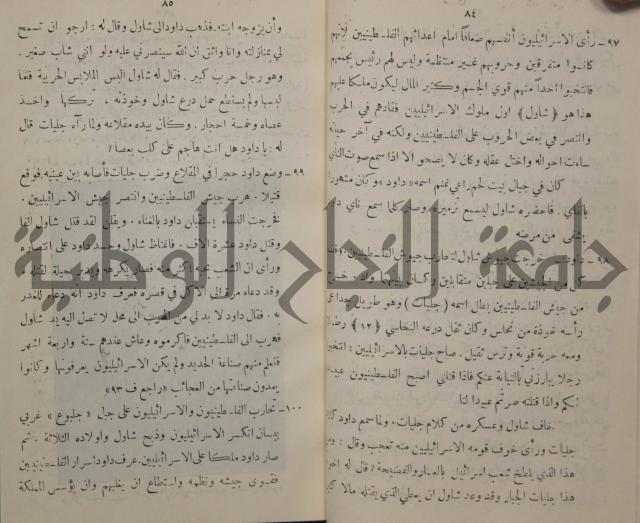 ٨٤
٩٧- رأى الاسرائيليون أنفسهم ضعافاً امام اعدائهم الفلسطينيين لأنهم
كانوا متفرقين وحروبهم غير منتظمة وليس لهم رئيس يجمعهم
فانتخبوا أحداً منهم قوي الجسم وكثير المال ليكون ملكا عليهم
هذا هو (شاول) اول ملوك الاسرائيليين فقادهم في الحرب
وانتصر في بعض الحروب على الفلسطينيين ولكنه في آخر حياته
ساءت احواله واختل عقله وكان لا يصحو الا اذا سمع صوت الناي
كان في جبال بيت لحم راعي غنم اسمه «داود» وكان مشهورا
بالناي. فاحضره شاول ليسمع تزميره وصار كلما سمع ناي داود
يشفى من مرضه
٩٨- خرجت جيوش شاول لتحارب جيوش الفلسطينيين
كل من الجيشين على جبلين متقابلين وكان بينهما واد
من جيش الفلسطينيين بطل اسمه (جليات) وهو طويل جدا على
رأسه خوذة من نحاس وكان ثقل درعه النحاسي (١٢) رطلا
ومعه حربة قوية وترس ثقيل. صاح جليات بالاسرائيليين: انتخبوا
رجلا يبارزني بالنيابة عنكم فاذا قتلني اصبح الفلسطينيون عبيدا
لكم واذا قتلته صرتم عبيدا لنا
خاف شاول وعسكره من كلام جليات. ولما سمع داود كلام
جليات ورأى خوف قومه الاسرائيليين منه تعجب وقال:
هذا الذي يلطخ شعب اسرائيل بالعار والفضيحة؟ قال له
هذا جليات الجبار وقد وعد شاول ان يعطي الذي يقتله مالا كثيرا
٨٥
وأن يزوجه ابنته. فذهب داود الى شاول وقال له: ارجو ان تسمح
لي بمنازلته وانا واثق ان الله سينصرني عليه ولو انني شاب صغير.
وهو رجل حرب كبير. فقال له شاول البس الملابس الحربية فلما
لبسها ولم يستطع حمل درع شاول وخوذته، تركها واخذ
عصاه وخمسة احجار. وكان بيده مقلاعه ولما رآه جليات قال
له: يا داود هل انت هاجم على كلب بعصا؟
٩٩- وضع داود حجرا في المقلاع وضرب جليات فأصابه بين عينيه فوقع
قتيلا. هرب جيش الفلسطينيين وانتصر جيش الاسرائيليين.
فخرجت النساء يستقبلن داود بالغناء. ويقلن لقد قتل شاول الفا
وقتل داود عشرة آلاف. فاغتاظ شاول وحسد داود على انتصاره
ورأى ان الشعب يحبه اكثر منه فصار يكرهه ويدبر حيلة لقتله.
وقد دعاه مرة الى الاكل في قصره فعرف داود انه دعاه للغدر
به. فقال داود لا بد لي من الهرب الى محل لا تصل اليه يد شاول
فهرب الى الفلسطينيين فاكرموه وعاش عندهم سنة واربعة اشهر
فتعلم منهم صناعة الحديد ولم يكن الاسرائيليون يعرفونها وكانوا
يعدون صناعتها من العجائب «راجع ف ٩٣»
١٠٠- تحارب الفلسطينيون والاسرائيليون على جبل «جلبوع» غربي
بيسان انكسر الاسرائيليون وذبح شاول واولاده الثلاثة. ثم
صار داود ملكا على الاسرائيليين. عرف داود اسرار الفلسطينيين
فقوى جيشه ونظمه واستطاع ان يغلبهم وان يؤسس المملكة
جامعة النجاح الوطنية